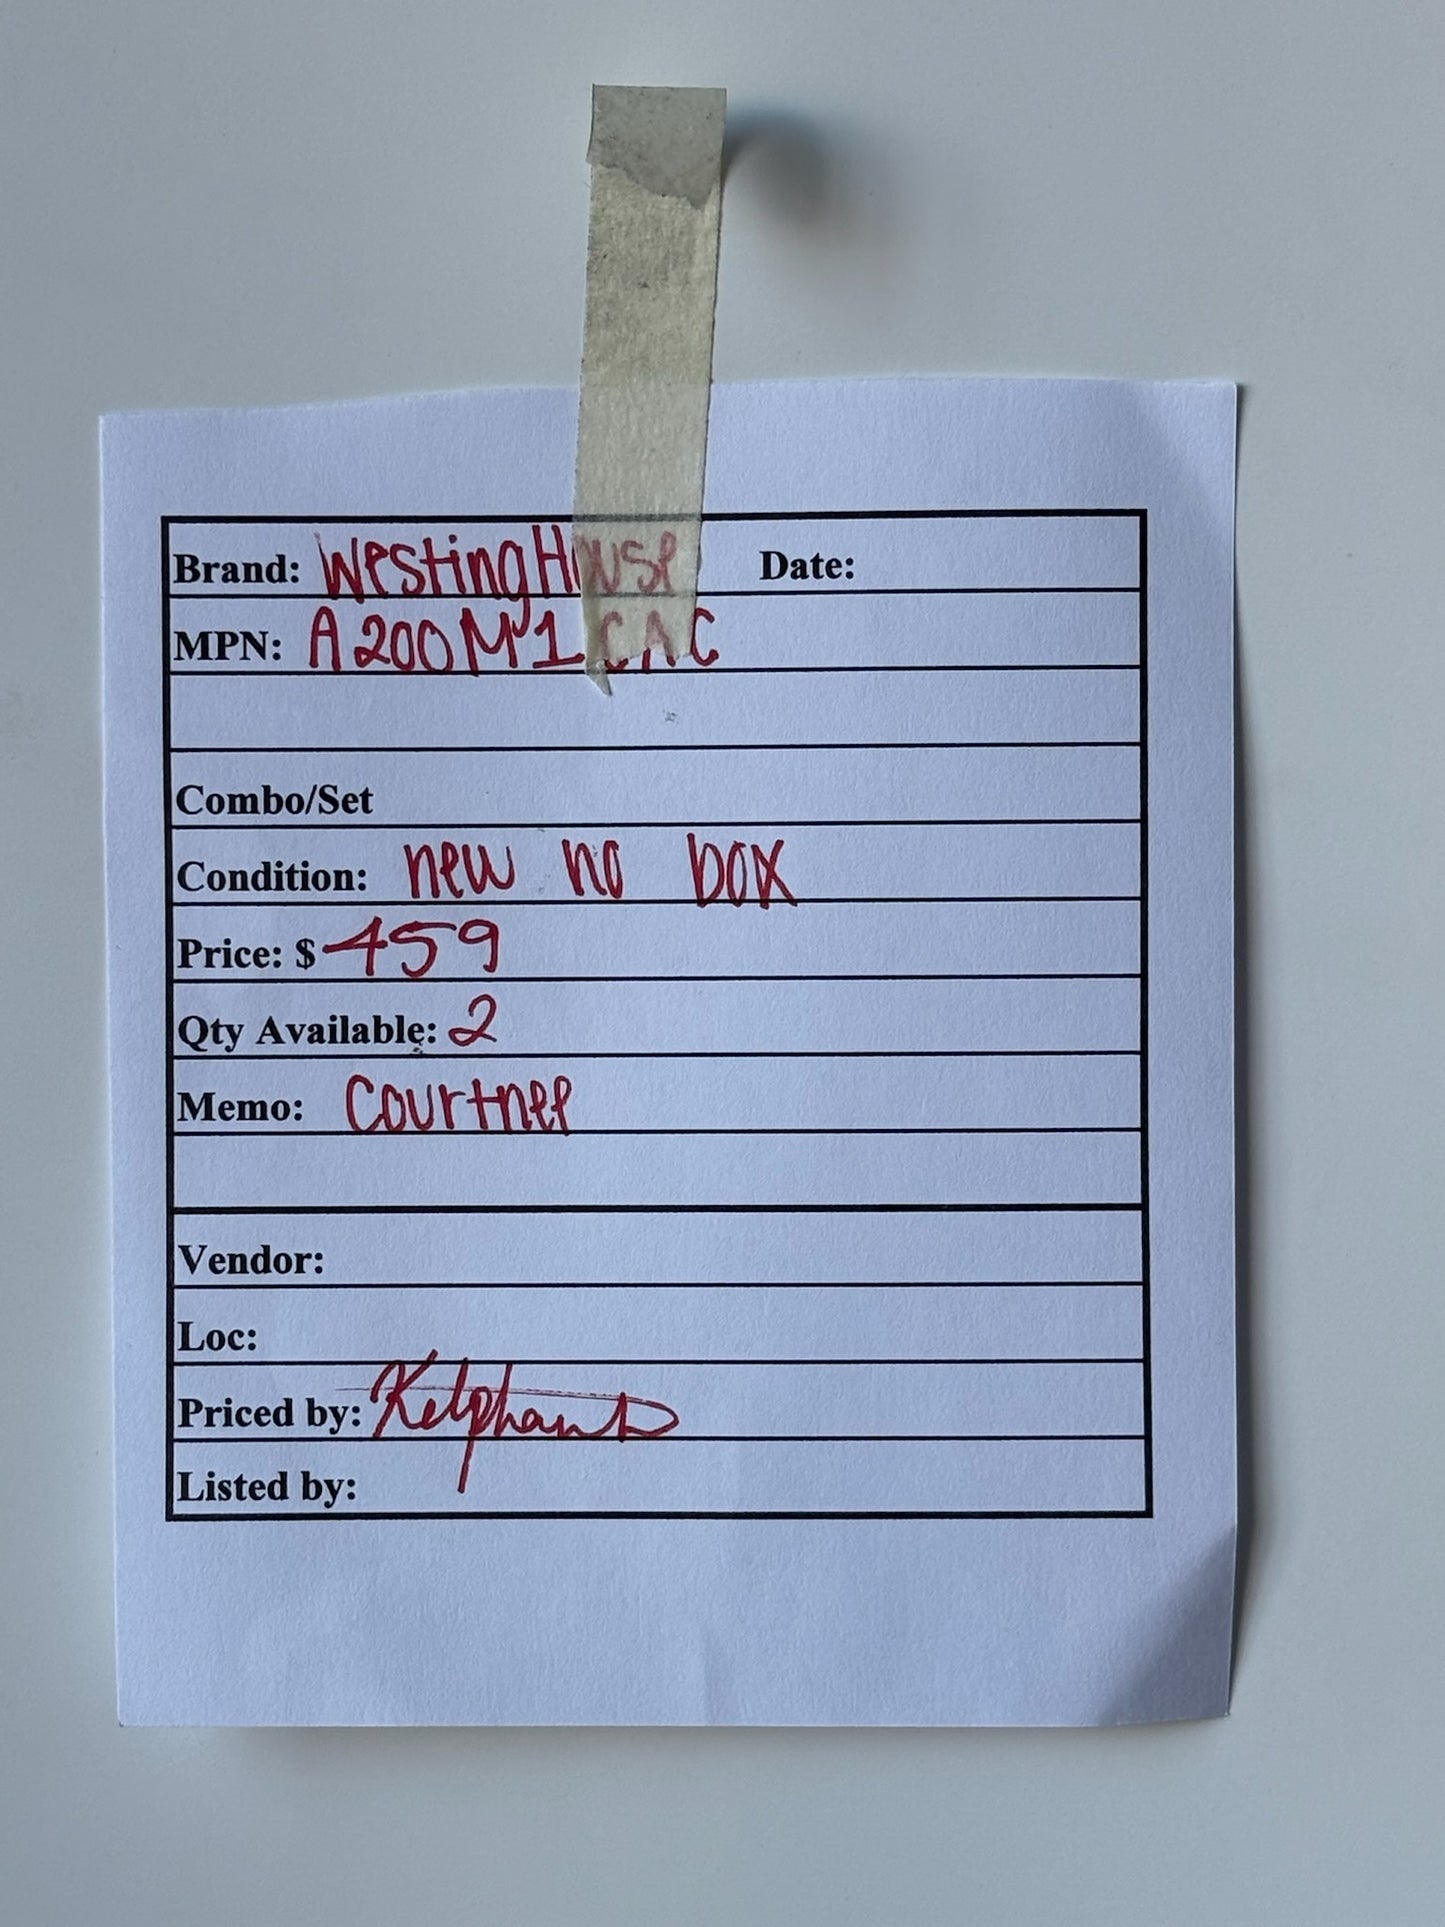 Brand: WestingHouse Date:
MPN: A200M1CAC
Combo/Set
Condition: new no box
Price: $ 459
Qty Available: 2
Memo: Courtnee
Vendor:
Loc:
Priced by:
Listed by: